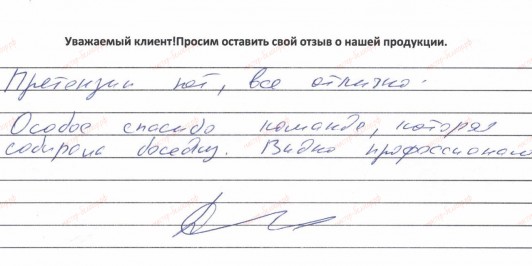 Уважаемый клиент!Просим оставить свой отзыв о нашей продукции.
Претензий нет, все отлично.
Особое спасибо команде, которая
собирала беседку. Видно профессионал